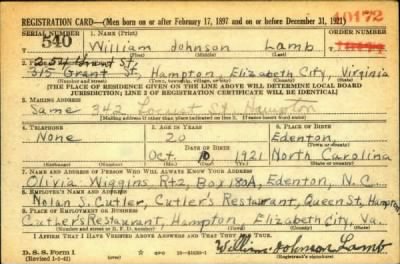 REGISTRATION CARD—(Men born on or after February 17, 1897 and on or before December 31, 1921)
SERIAL NUMBER
1. NAME (Print)
ORDER NUMBER
540
William Johnson Lamb
10172
(First) (Middle) (Last)
254 Grant St,
315 Grant St, Hampton, Elizabeth City, Virginia
[THE PLACE OF RESIDENCE GIVEN ON THE LINE ABOVE WILL DETERMINE LOCAL BOARD
JURISDICTION; LINE 2 OF REGISTRATION CERTIFICATE WILL BE IDENTICAL]
3. MAILING ADDRESS
Same 342 Locust St, Hampton
[Mailing address if other than place indicated on line 2. If same insert word same]
4. TELEPHONE
5. AGE IN YEARS
6. PLACE OF BIRTH
None
20
Edenton,
DATE OF BIRTH
(Town or county)
Oct 10 1921
North Carolina
(Exchange) (Number)
(Mo.) (Day) (Yr.)
(State or country)
7. NAME AND ADDRESS OF PERSON WHO WILL ALWAYS KNOW YOUR ADDRESS
Olivia Wiggins Rt2, Box 80A, Edenton, N. C.
8. EMPLOYER'S NAME AND ADDRESS
Nolan S. Cutler, Cutler's Restaurant, Queen St, Hampton,
9. PLACE OF EMPLOYMENT OR BUSINESS
Cutler's Restaurant, Hampton, Elizabeth City, Va.
(Number and street or R. F. D. number) (Town) (County) (State)
I AFFIRM THAT I HAVE VERIFIED ABOVE ANSWERS AND THAT THEY ARE TRUE.
D. S. S. Form 1
(Revised 1-1-42)
(over)
William Johnson Lamb
(Registrant's signature)